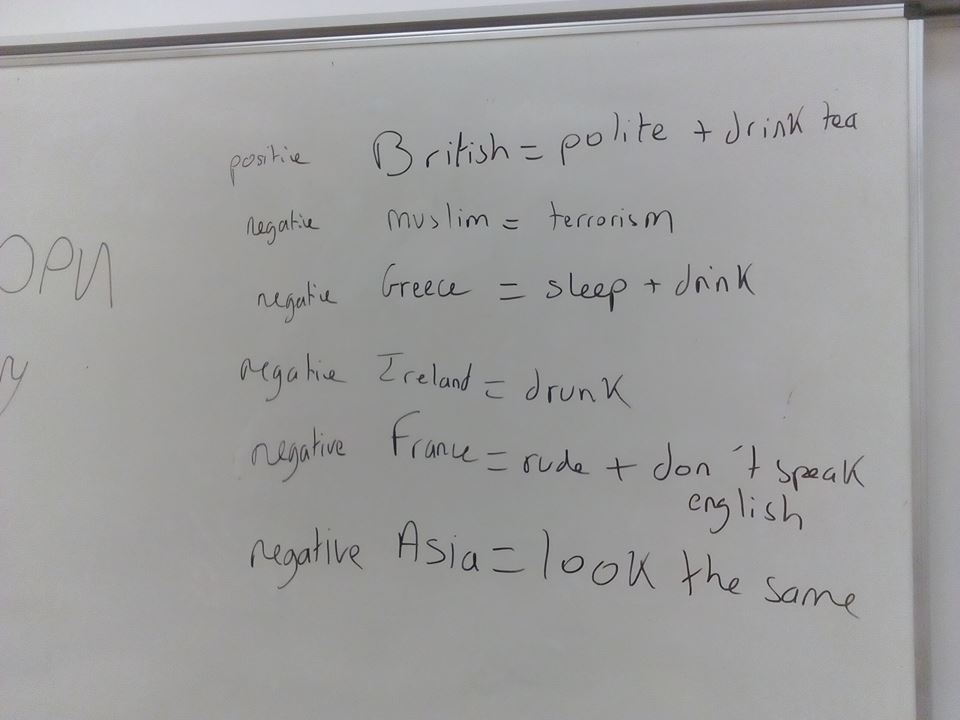 positive British = polite + drink tea
negative muslim = terrorism
ОРИ
negative Greece = sleep + drink
negative Ireland = drunk
negative France = rude + don't speak
english
negative Asia = look the same